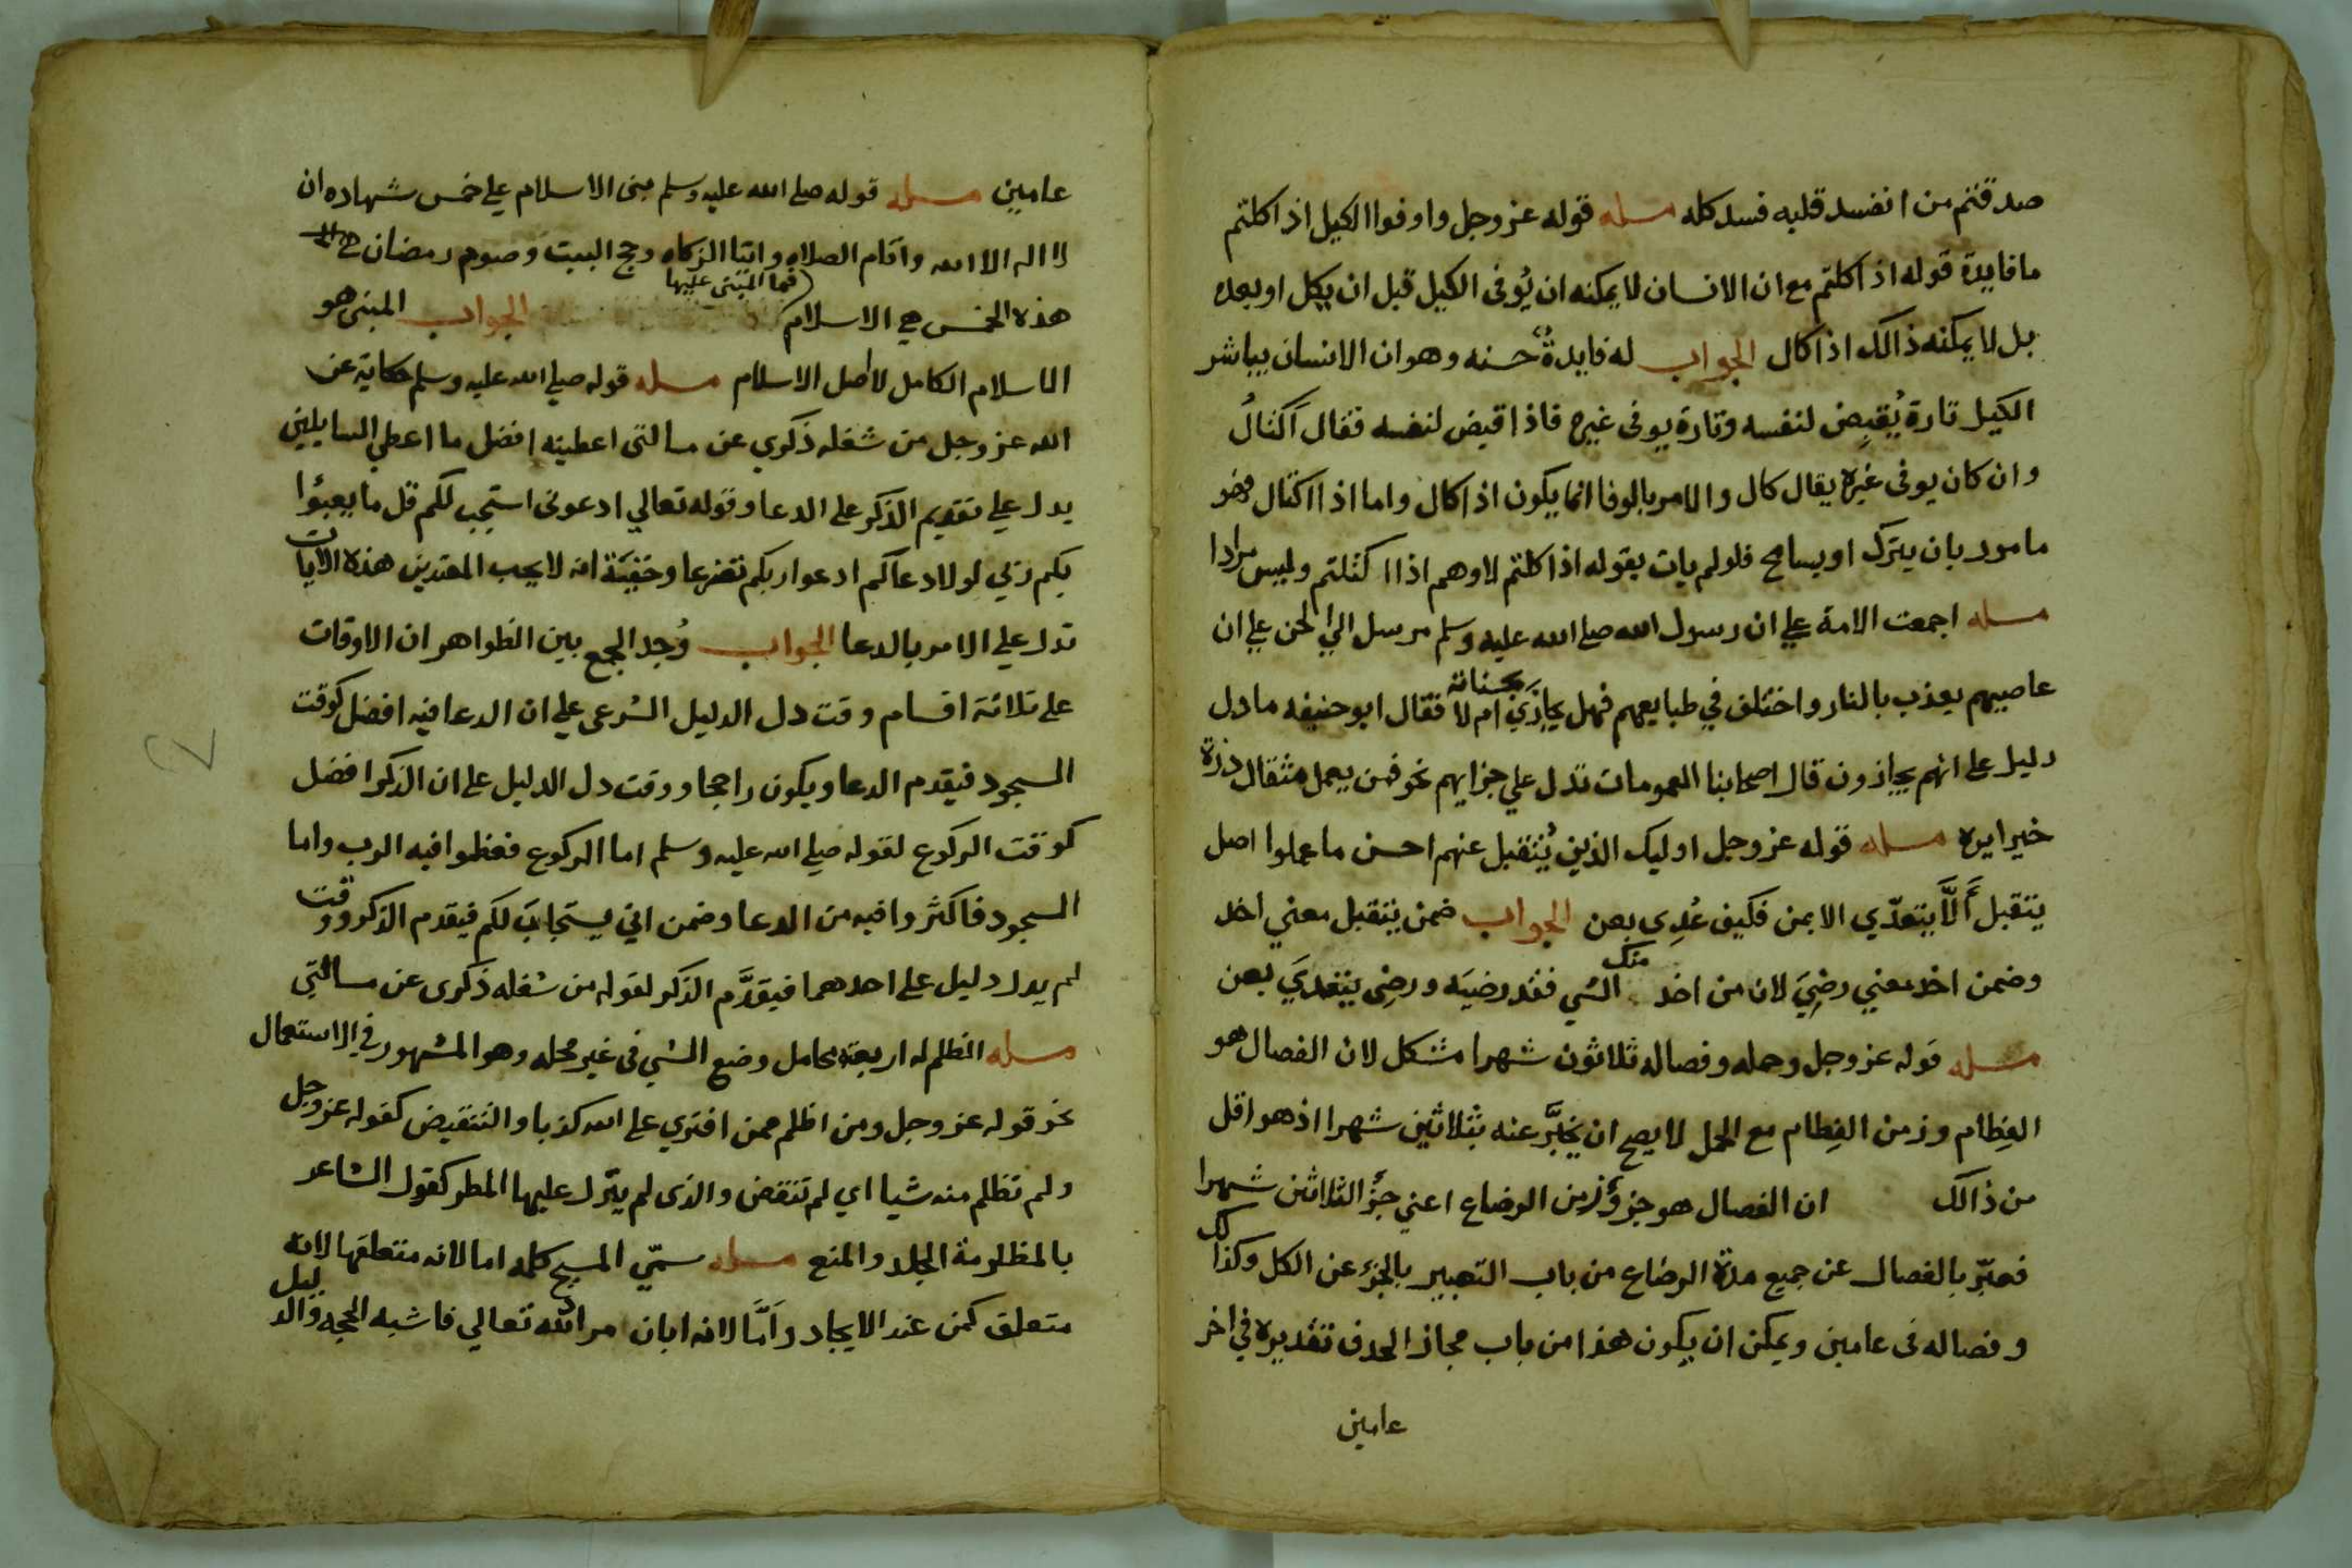 صدقتم من انفسد قلبه فسد كله مسله قوله عز وجل واوفوا الكيل اذا كلتم
ما فايدة قوله اذا كلتم مع ان الانسان لا يمكنه ان يُوفى الكيل قبل ان يكل او بعده
بل لا يمكنه ذالك اذا كال الجواب له فايدةٌ حسنه وهو ان الانسان يباشر
الكيل تارة يُقبِض لنفسه وتارة يوفى غيره فاذا قبض لنفسه فقال اكتالُ
وان كان يوفى غيره يقال كال والامر بالوفا انما يكون اذا كال واما اذا اكتال فهو
مامور بان يترك او يسامح فلو لم يات بقوله اذا كلتم لاوهم اذا اكتلتم وليس مرادا
مسله اجمعت الامة علي ان رسول الله صلي الله عليه وسلم مرسل الي الجن علي ان
عاصيهم يعذب بالنار واختلف في طبايعهم فهل يجازي بحسناته ام لا فقال ابو حنيفه ما دل
دليل على انهم يجازون قال اصحابنا العمومات تدل علي جزايهم نحو فمن يعمل مثقال ذرة
خيرا يره مسله قوله عز وجل اوليك الذين يُتقبل عنهم احسن ما عملوا اصل
يتقبل أَلَّا يتعدّي الا بمن فكيف عُدِى بعن الجواب ضمن يتقبل معني اخذ
وضمن اخذ معني رضِيَ لان من اخذ منك الشي فقد رضيَه ورضِى يتعدي بعن
مسله قوله عز وجل وحمله وفصاله ثلاثون شهرا مشكل لان الفصال هو
الفِطام وزمن الفِطام مع الحمل لا يصح ان يُخبَّر عنه بثلاثين شهرا اذ هو اقل
من ذالك ان الفصال هو جزؤ زمن الرضاع اعني جزُؤ الثلاثين شهرا
فعبّر بالفصال عن جميع مدة الرضاع من باب التعبير بالجزء عن الكل وكذالك
وفصاله فى عامين ويمكن ان يكون هذا من باب مجاز الحدف تقديره في اخر
عامين
عامين مسله قوله صلي الله عليه وسلم بنى الاسلام علي خمس شهاده ان
لا اله الا الله واقام الصلاه وايتا الزكاه وحج البيت وصوم رمضان
هذه الخمس هي الاسلام فما المبنى عليها الجواب المبنى هو
الاسلام الكامل لا اصل الاسلام مسله قوله صلي الله عليه وسلم حكاية عن
الله عز وجل من شغله ذكري عن مسالتى اعطيته افضل ما اعطي السايلين
يدل علي تقديم الذكر على الدعا وقوله تعالي ادعونى استجب لكم قل ما يعبؤا
بكم ربي لولا دعاكم ادعوا ربكم تضرعا وخفيَة انه لا يحب المعتدين هذه الايات
تدل علي الامر بالدعا الجواب وُجد الجمع بين الظواهر ان الاوقات
على ثلاثة اقسام وقت دل الدليل الشرعى علي ان الدعا فيه افضل كوقت
السجود فيقدم الدعا ويكون راجحا ووقت دل الدليل على ان الذكر افضل
كوقت الركوع لقوله صلي الله عليه وسلم اما الركوع فعظموا فيه الرب واما
السجود فاكثروا فيه من الدعا وضمن اني يستجابَ لكم فيقدم الذكر ووقت
لم يدل دليل على احدهما فيقدَّم الذكر لقوله من شغله ذكرى عن مسالتي
مسله الظلم له اربعة محامل وضع الشي فى غير محله وهو المشهور في الاستعمال
نحو قوله عز وجل ومن اظلم ممن افتري على الله كذبا والتنقيض كقوله عز وجل
ولم تظلم منه شيا اي لم تنقض والذى لم ينزل عليها المطر كقول الشاعر
بالمظلومة الجلد والمنع مسله سمّي المسيح كلمه اما لانه متعلقها لانه
متعلق كمن عند الايجاد وأمّا لانه ابان مر الله تعالي فاشبه الحجه والدليل